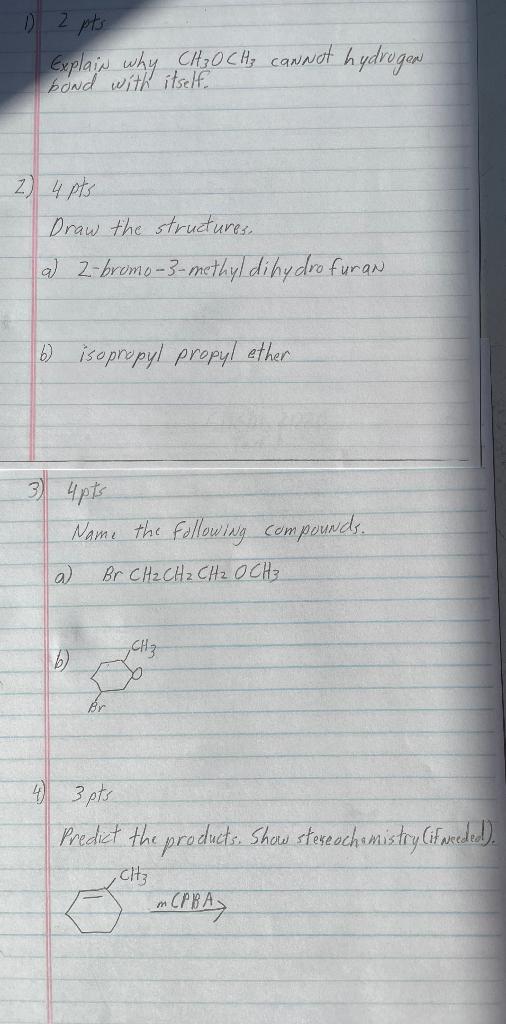 1) 2 pts
Explain why CH3OCH3 cannot hydrogen
bond with itself.
2) 4 pts
Draw the structures.
a) 2-bromo-3-methyldihydrofuran
b) isopropyl propyl ether
3) 4pts
Name the following compounds.
a) BrCH2CH2CH2OCH3
b) CH3
O
Br
4) 3 pts
Predict the products. Show stereochemistry (if needed).
CH3
mCPBA